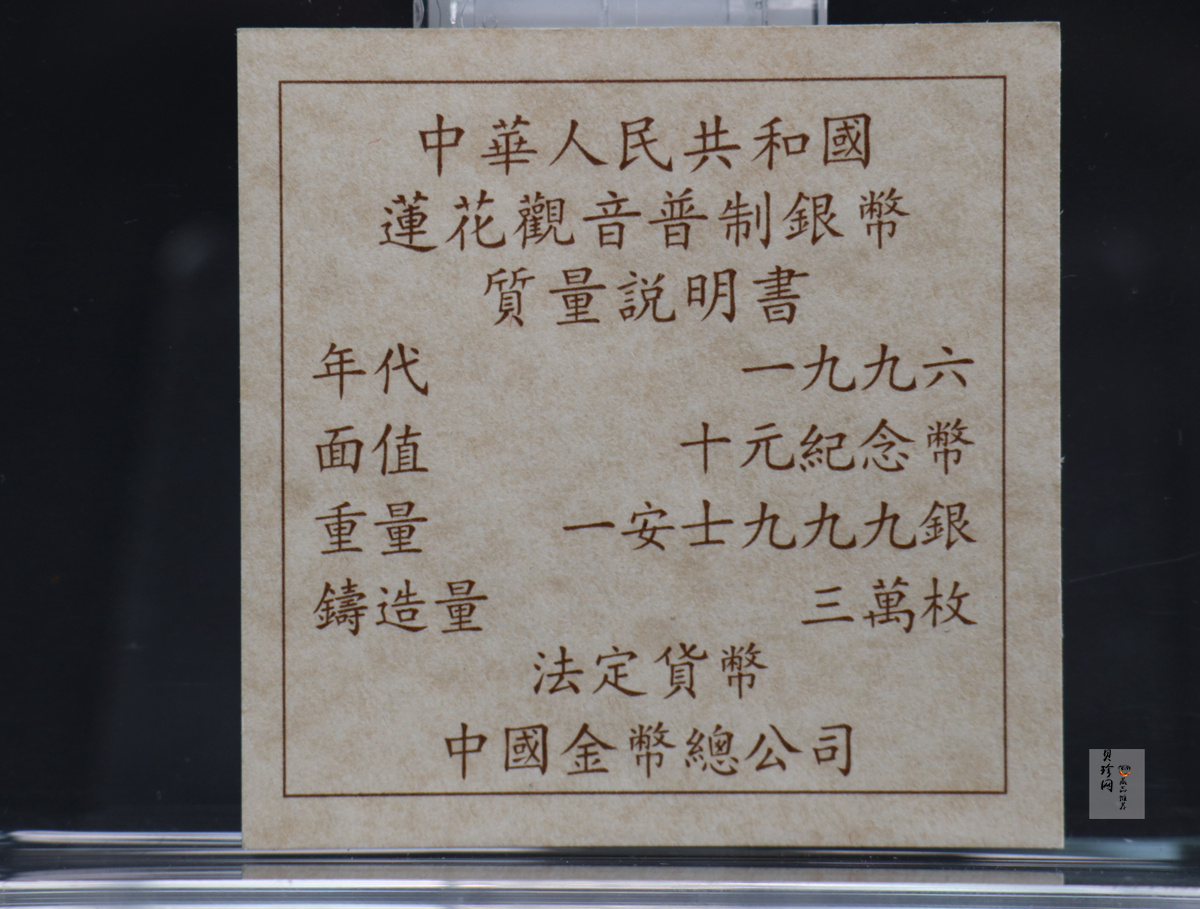 中華人民共和國
蓮花觀音普制銀幣
質量説明書
年代 一九九六
面值 十元紀念幣
重量 一安士九九九銀
鑄造量 三萬枚
法定貨幣
中國金幣總公司
貝珍网